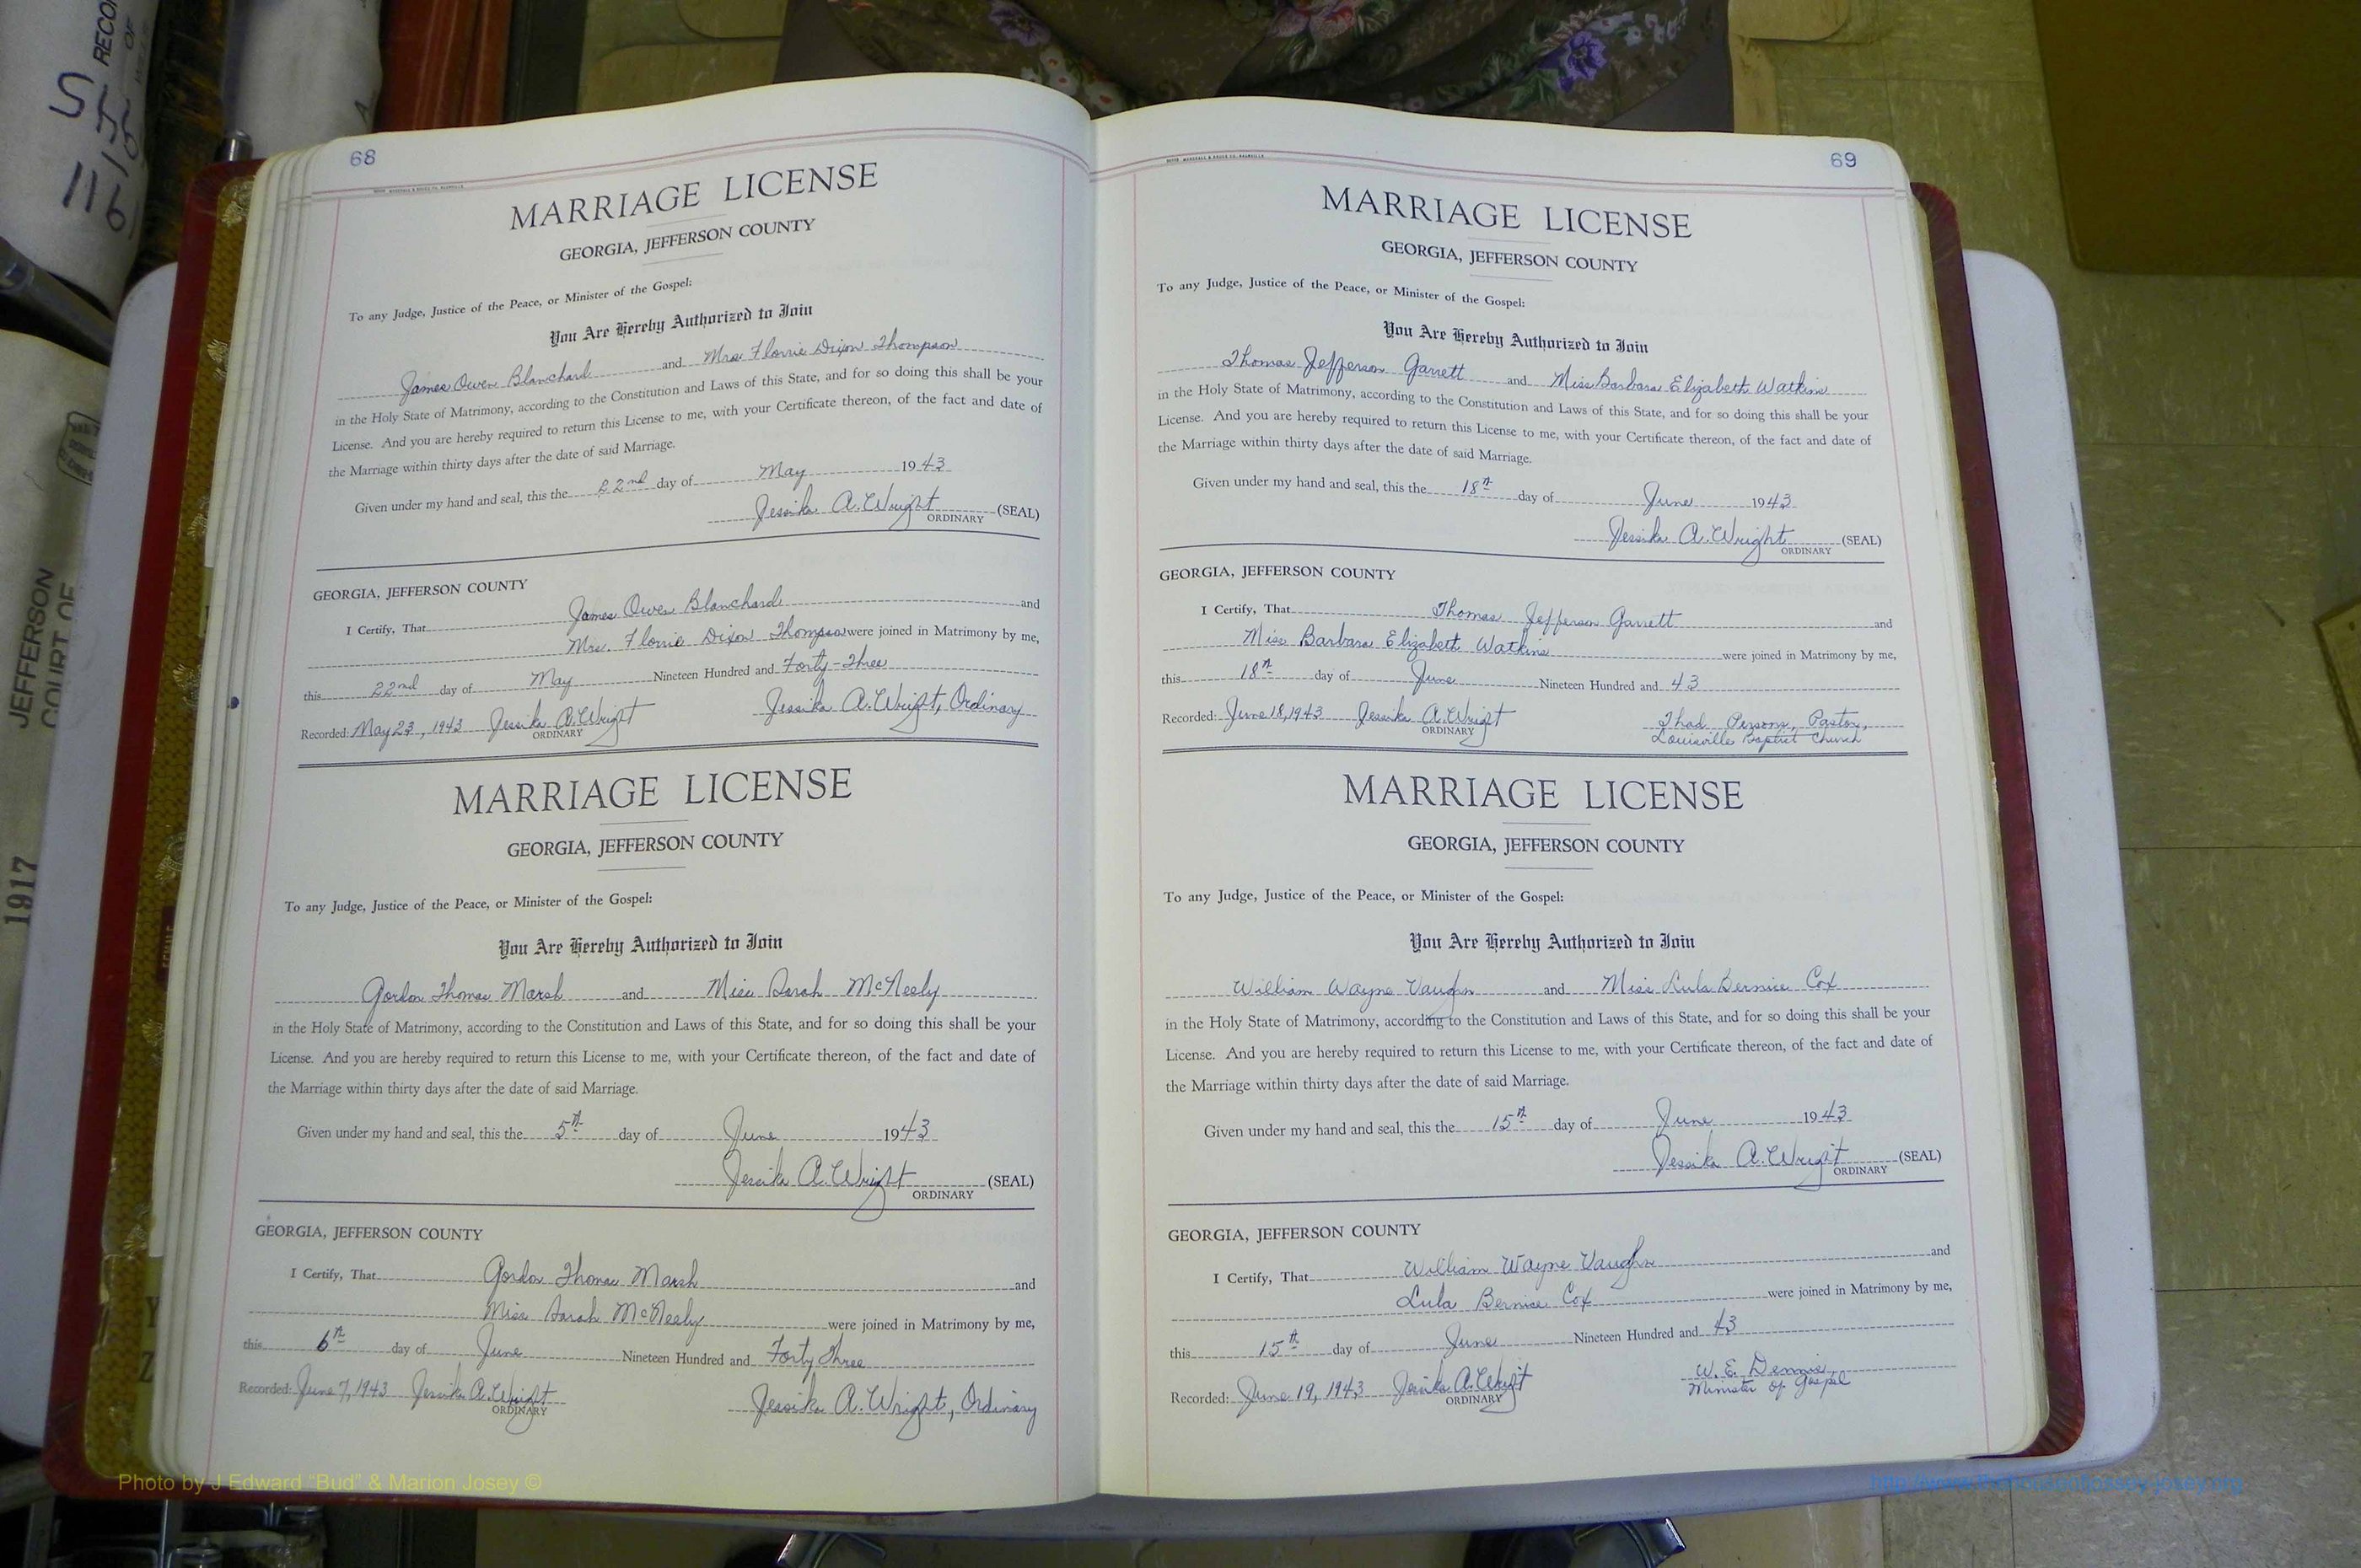 S
RECO
OF
11-15
JEFFERSON
COURT OF
1917
68
MARRIAGE LICENSE
GEORGIA, JEFFERSON COUNTY
To any Judge, Justice of the Peace, or Minister of the Gospel:
You Are Hereby Authorized to Join
James Owen Blanchard and Mrs Florrie Dixon Thompson
in the Holy State of Matrimony, according to the Constitution and Laws of this State, and for so doing this shall be your
License. And you are hereby required to return this License to me, with your Certificate thereon, of the fact and date of
the Marriage within thirty days after the date of said Marriage.
Given under my hand and seal, this the 22nd day of May 1943
Jessika A. Wright (SEAL)
ORDINARY
GEORGIA, JEFFERSON COUNTY
I Certify, That James Owen Blanchard and
Mrs. Florrie Dixon Thompson were joined in Matrimony by me,
this 22nd day of May Nineteen Hundred and Forty-Three
Recorded: May 23, 1943 Jessika A. Wright Jessika A. Wright, Ordinary
ORDINARY
MARRIAGE LICENSE
GEORGIA, JEFFERSON COUNTY
To any Judge, Justice of the Peace, or Minister of the Gospel:
You Are Hereby Authorized to Join
Gordon Thomas Marsh and Miss Sarah McNeely
in the Holy State of Matrimony, according to the Constitution and Laws of this State, and for so doing this shall be your
License. And you are hereby required to return this License to me, with your Certificate thereon, of the fact and date of
the Marriage within thirty days after the date of said Marriage.
Given under my hand and seal, this the 5th day of June 1943
Jessika A. Wright (SEAL)
ORDINARY
GEORGIA, JEFFERSON COUNTY
I Certify, That Gordon Thomas Marsh and
Miss Sarah McNeely were joined in Matrimony by me,
this 6th day of June Nineteen Hundred and Forty Three
Recorded: June 7, 1943 Jessika A. Wright Jessika A. Wright, Ordinary
ORDINARY
69
MARRIAGE LICENSE
GEORGIA, JEFFERSON COUNTY
To any Judge, Justice of the Peace, or Minister of the Gospel:
You Are Hereby Authorized to Join
Thomas Jefferson Garrett and Miss Barbara Elizabeth Watkins
in the Holy State of Matrimony, according to the Constitution and Laws of this State, and for so doing this shall be your
License. And you are hereby required to return this License to me, with your Certificate thereon, of the fact and date of
the Marriage within thirty days after the date of said Marriage.
Given under my hand and seal, this the 18th day of June 1943
Jessika A. Wright (SEAL)
ORDINARY
GEORGIA, JEFFERSON COUNTY
I Certify, That Thomas Jefferson Garrett and
Miss Barbara Elizabeth Watkins were joined in Matrimony by me,
this 18th day of June Nineteen Hundred and 43
Recorded: June 18, 1943 Jessika A. Wright Thad Persons, Pastor,
ORDINARY Louisville Baptist Church
MARRIAGE LICENSE
GEORGIA, JEFFERSON COUNTY
To any Judge, Justice of the Peace, or Minister of the Gospel:
You Are Hereby Authorized to Join
William Wayne Vaughn and Miss Lula Bernice Cox
in the Holy State of Matrimony, according to the Constitution and Laws of this State, and for so doing this shall be your
License. And you are hereby required to return this License to me, with your Certificate thereon, of the fact and date of
the Marriage within thirty days after the date of said Marriage.
Given under my hand and seal, this the 15th day of June 1943
Jessika A. Wright (SEAL)
ORDINARY
GEORGIA, JEFFERSON COUNTY
I Certify, That William Wayne Vaughn and
Lula Bernice Cox were joined in Matrimony by me,
this 15th day of June Nineteen Hundred and 43
Recorded: June 19, 1943 Jessika A. Wright W. E. Dennis,
ORDINARY Minister of Gospel
Photo by J Edward "Bud" & Marion Josey ©